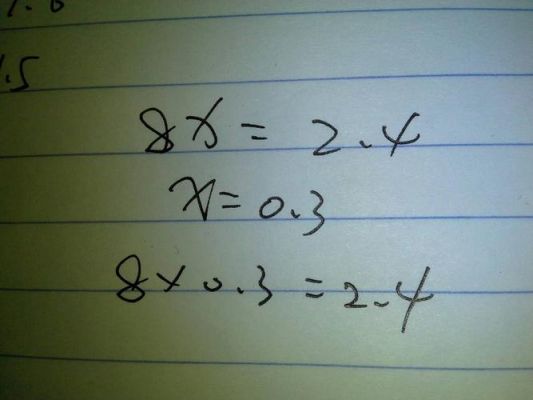 .5
8x = 2.4
x = 0.3
8 × 0.3 = 2.4